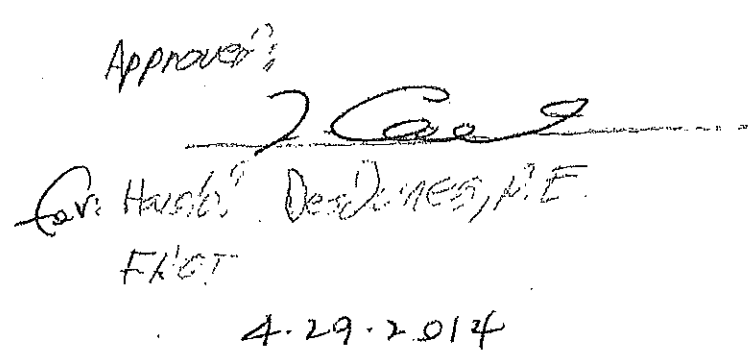 Approved:
for: Harold Desdunes, P.E.
FDOT
4.29.2014